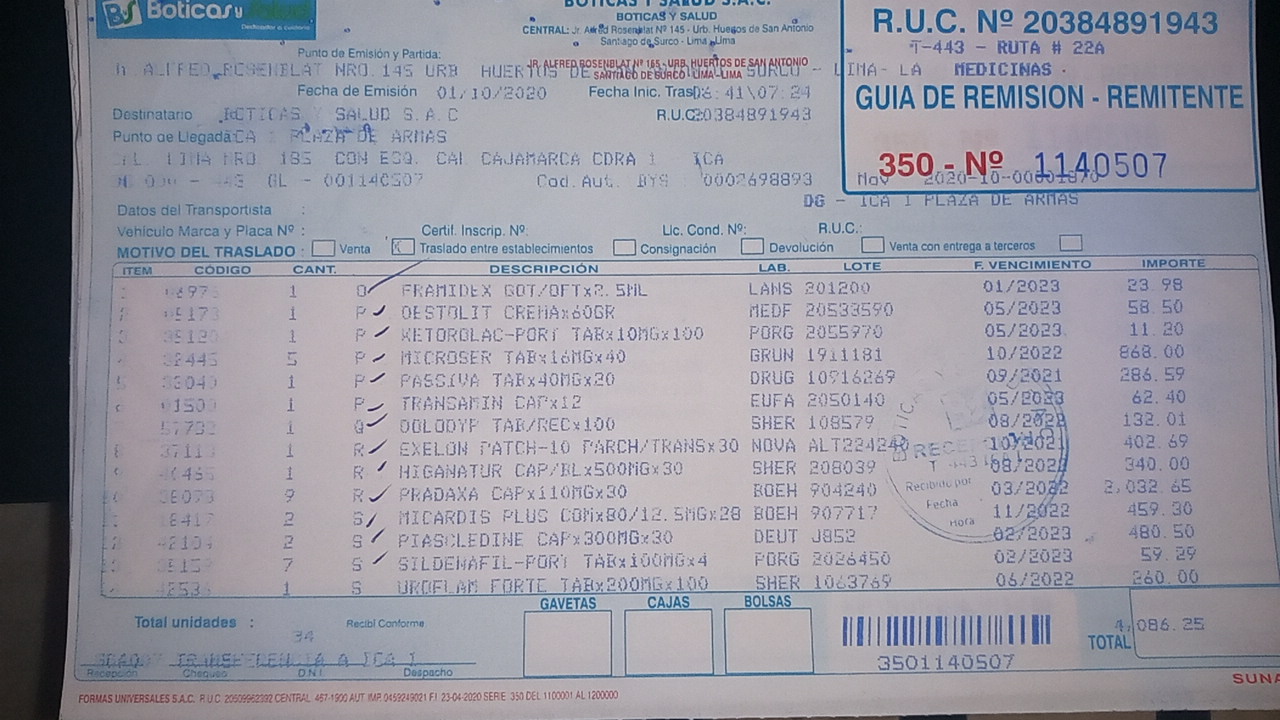 Boticas y Salud
BOTICAS Y SALUD S.A.C.
BOTICAS Y SALUD
CENTRAL: Jr. Alfred Rosenblat Nº 145 - Urb. Huertos de San Antonio
Santiago de Surco - Lima - Lima
R.U.C. Nº 20384891943
T-443 - RUTA # 22A
MEDICINAS
GUIA DE REMISION - REMITENTE
350 - Nº 1140507
Punto de Emisión y Partida:
ALFRED ROSENBLAT NRO. 145 URB HUERTOS DE SURCO - LIMA- LA
JR. ALFRED ROSENBLAT Nº 165 - URB. HUERTOS DE SAN ANTONIO
SANTIAGO DE SURCO - LIMA - LIMA
Fecha de Emisión 01/10/2020 Fecha Inic. Tras 06:41\07:24
Destinatario SALUD S.A.C R.U.C: 20384891943
Punto de Llegada ICA 1 PLAZA DE ARMAS
CAL LIMA NRO 185 CON ESQ. CAL CAJAMARCA CDRA 1 ICA
GL - 001140507 Cod.Aut. BYS 0002698893 Mov
DG - ICA 1 PLAZA DE ARMAS
Datos del Transportista :
Vehículo Marca y Placa Nº : Certif. Inscrip. Nº: Lic. Cond. Nº: R.U.C.:
MOTIVO DEL TRASLADO : Venta X Traslado entre establecimientos Consignación Devolución Venta con entrega a terceros
ITEM CÓDIGO CANT. DESCRIPCIÓN LAB. LOTE F. VENCIMIENTO IMPORTE
1 O FRAMIDEX GOT/OFTx2.5ML LANS 201200 01/2023 23.98
1 P OESTOLIT CREMAx60GR MEDF 20533590 05/2023 58.50
1 P KETOROLAC-PORT TABx10MGx100 PORG 2055970 05/2023 11.20
32445 5 P MICROSER TABx16MGx40 GRUN 1911181 10/2022 868.00
33040 1 P PASSIVA TABx40MGx20 DRUG 10916269 09/2021 286.59
1 P TRANSAMIN CAPx12 EUFA 2050140 05/2023 62.40
1 Q DOLODYP TAB/RECx100 SHER 108579 08/2022 132.01
1 R EXELON PATCH-10 PARCH/TRANSx30 NOVA ALT224240 10/2021 402.69
1 R HIGANATUR CAP/BLx500MGx30 SHER 208039 08/2022 340.00
9 R PRADAXA CAPx110MGx30 BOEH 904240 03/2022 2,032.65
18417 2 S MICARDIS PLUS COMx80/12.5MGx28 BOEH 907717 11/2022 459.30
42104 2 S PIASCLEDINE CAPx300MGx30 DEUT J852 02/2023 480.50
7 S SILDENAFIL-PORT TABx100MGx4 PORG 2026450 02/2023 59.29
1 S UROFLAM FORTE TABx200MGx100 SHER 1063769 06/2022 260.00
Recibido por
Fecha
Hora
GAVETAS CAJAS BOLSAS
Total unidades : 34 Recibí Conforme
TRANSFERENCIA A ICA 1
Recepción Chequeo D.N.I. Despacho
3501140507
TOTAL 4,086.25
FORMAS UNIVERSALES S.A.C. R.U.C. 20509962392 CENTRAL 467-1900 AUT IMP. 0459249021 F.I. 23-04-2020 SERIE 350 DEL 1100001 AL 1200000